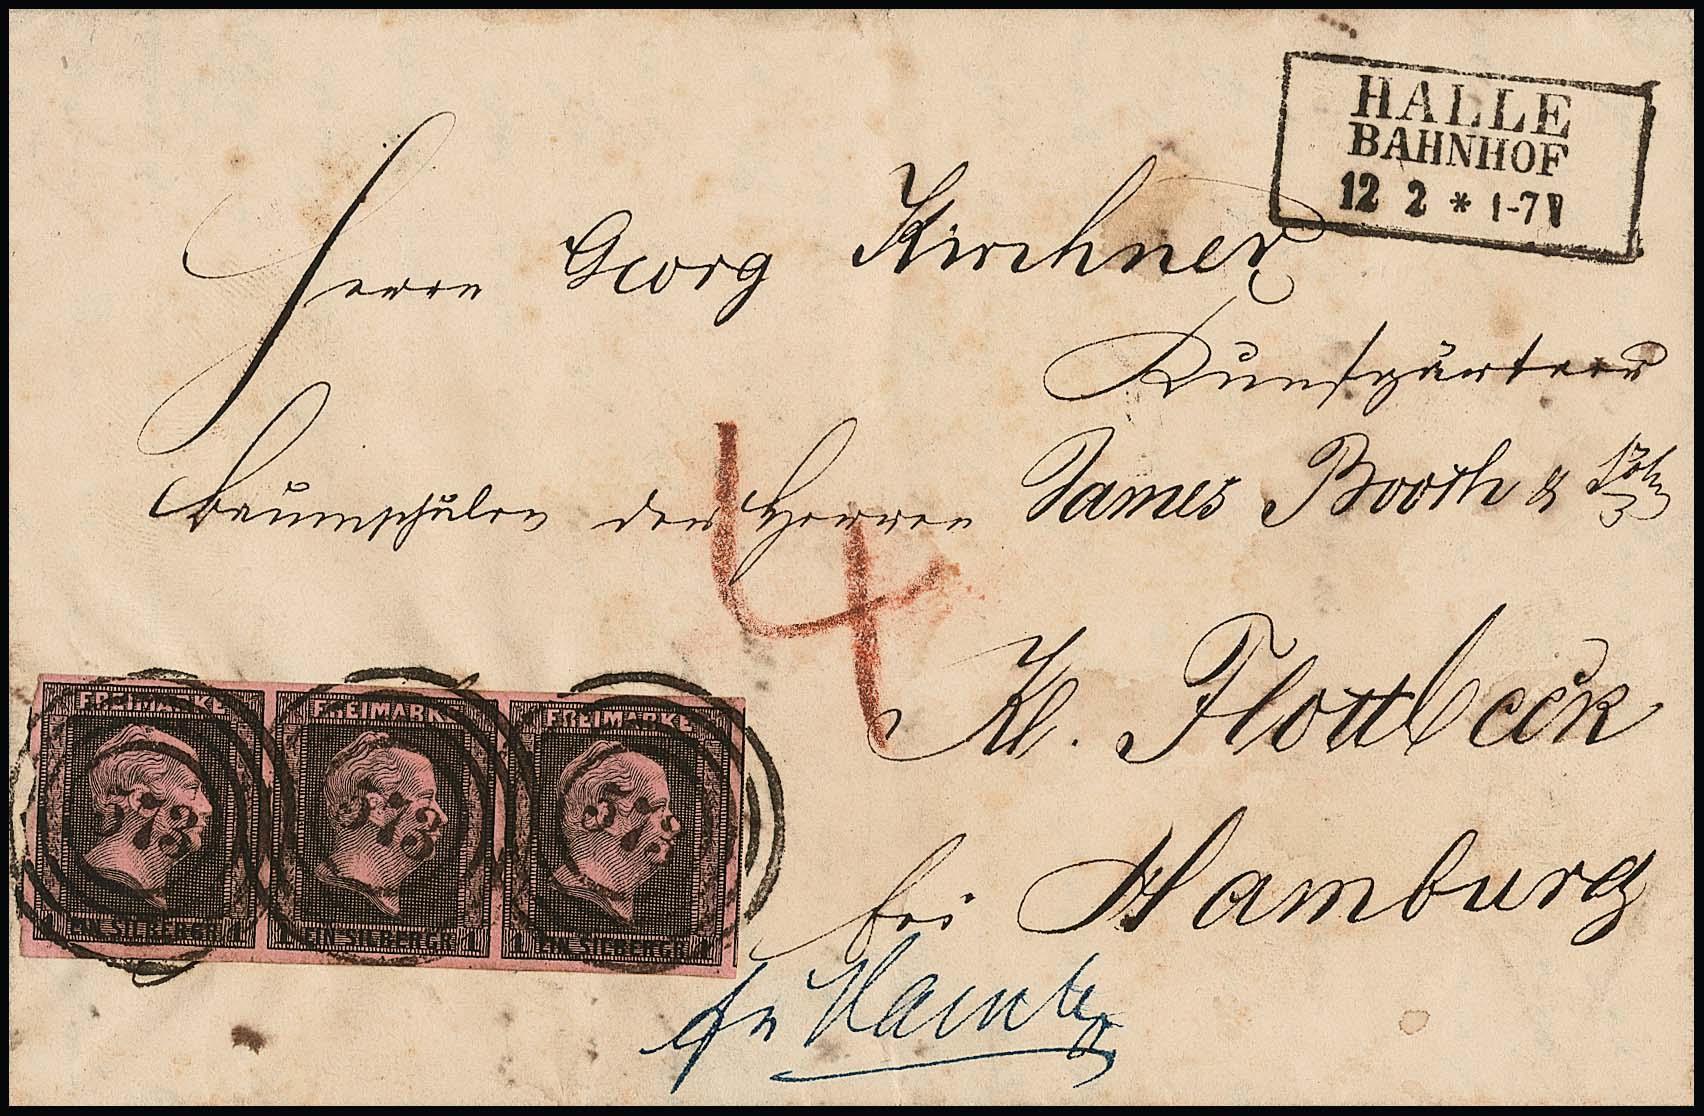 HALLE
BAHNHOF
12 2 * 1-7 V
Herrn Georg Kirchner
Kunstgärtner
Baumschulen der Herren James Booth & Söhne
4
Kl. Flottbeck
bei Hamburg
FREIMARKE FREIMARKE FREIMARKE
573 573 573
1 EIN SILBERGR. 1 1 EIN SILBERGR. 1 1 EIN SILBERGR. 1